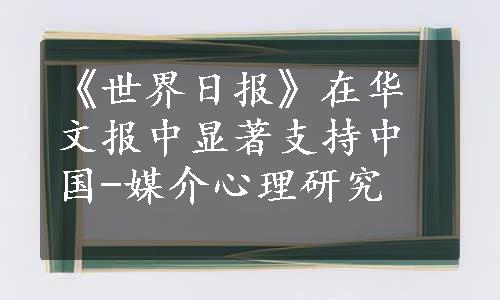 《世界日报》在华
文报中显著支持中
国-媒介心理研究